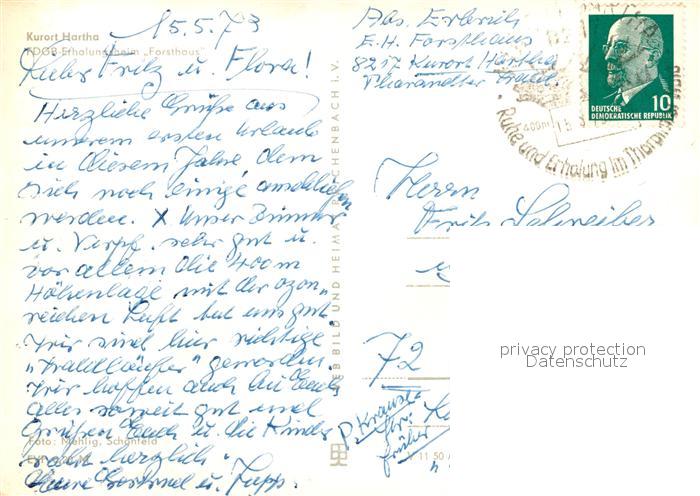 15.5.73
Kurort Hartha
FDGB-Erholungsheim „Forsthaus"
Liebe Fritz u. Flora!
Herzliche Grüße aus
unserem ersten Urlaub
in diesem Jahre dem
sich noch einige anschließen
werden. X Unser Zimmer
u. Verpf. sehr gut u.
vor allem die 400m
Höhenlage mit der ozon„
reichen Luft tut uns gut.
Wir sind hier richtige
„Waldläufer" geworden
Wir hoffen auch bei Euch
alles soweit gut und
Grüßen Euch u. die Kinder
recht herzlich.
Eure u. Jupp.
Foto: Mehlig, Schönfeld
VEB BILD UND HEIMAT REICHENBACH I. V.
V 11 50
Abs. Erberich
E.H. Forsthaus
8217 Kurort Hartha
Tharandter Wald.
DEUTSCHE
DEMOKRATISCHE REPUBLIK
10
400m
Ruhe und Erholung im
Herrn
Fritz Schreiber
72
früher
privacy protection
Datenschutz